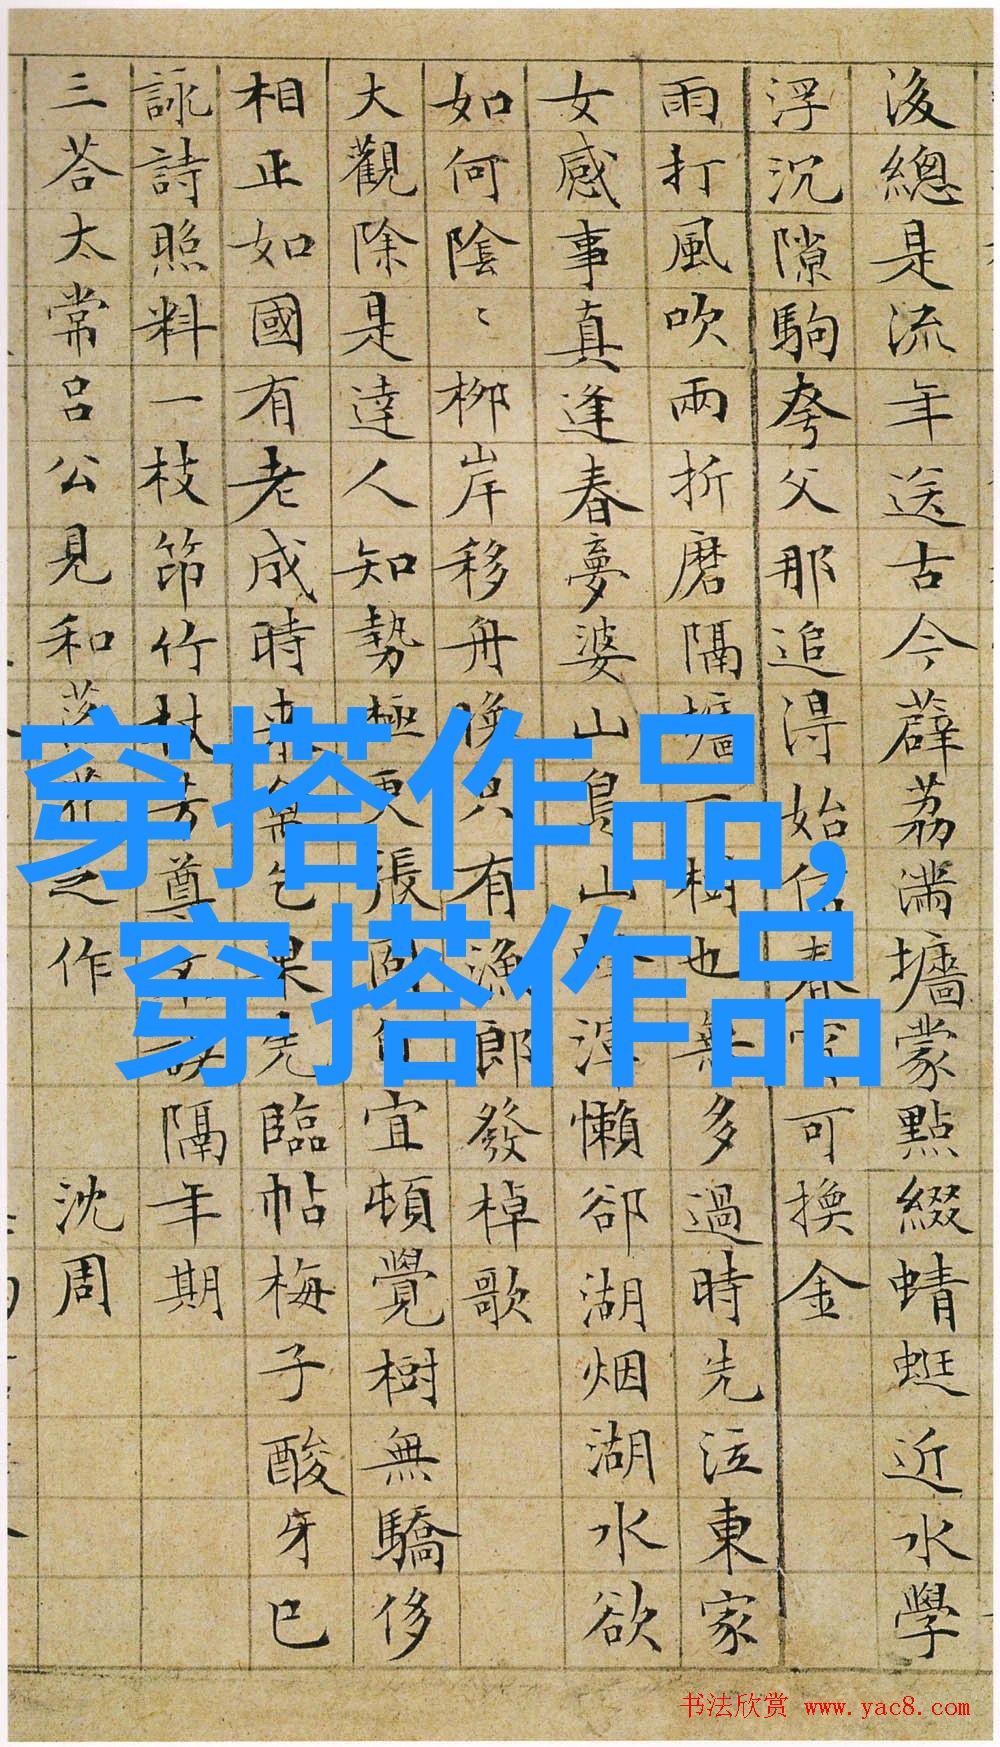 後總是流年送古今薜荔滿墻蒙點綴蜻蜓近水學
浮沉隙駒夸父那追得始信春宵可換金
雨打風吹兩折磨隔墻一樹也無多過時先泣東家
女感事真逢春夢婆山鳥山 懶卻湖烟湖水欲
如何陰〻柳岸移舟喚只有漁郎發棹歌
大觀除是達人知勢極更張 宜頓覺樹無驕侈
相正如國有老成時 果先臨帖梅子酸牙已
詠詩照料一枝笻竹杖芳尊 隔年期
三荅太常呂公見和落花之作 沈周
穿搭作品,
穿搭作品
书法欣赏 www.yac8.com